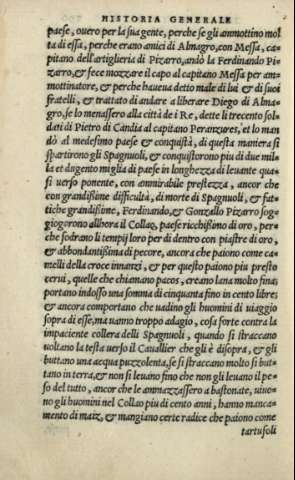 HISTORIA GENERALE
paese, ouero per la sua gente, perche se gli ammottino mol
ta di essa, perche erano amici di Almagro, con Messa, ca-
pitano dell'artiglieria di Pizarro, andò la Ferdinando Pi-
zarro, & fece mozzare il capo al capitano Messa per am-
mottinatore, & perche haueua detto male di lui & di suoi
fratelli, & trattato di andare a liberare Diego di Alma-
gro, se lo menassero alla città de i Re, dette li trecento sol-
dati di Pietro di Candia al capitano Peranzures, et lo man
dò al medesimo paese & conquista, di questa maniera si
spartirono gli Spagnuoli, & conquistorono piu di due mi-
la et dugento miglia di paese in longhezza di leuante qua-
si uerso ponente, con ammirabile prestezza, ancor che
con grandissime difficultà, di morte di Spagnuoli, & fa-
tiche grandissime, Ferdinando, & Gonzallo Pizarro sog-
giogorono allhora il Collao, paese ricchissimo di oro, per-
che fodrano li tempij loro per di dentro con piastre di oro,
& abbondantissima di pecore, ancora che paiono come ca-
melli della croce innanzi, & per questo paiono piu presto
cerui, quelle che chiamano pacos, creano lana molto fina,
portano indosso una somma di cinquanta fino in cento libre,
& ancora comportano che uadino gli huomini di uiaggio
sopra di esse, ma uanno troppo adagio, cosa forte contra la
impaciente collera delli Spagnuoli, quando si straccano
uoltano la testa uerso il Cauallier che gli è disopra, & gli
buttano una acqua puzzolenta, se si straccano molto si but-
tano in terra, & non si leuano fino che non gli leuano il pe-
so del tutto, ancor che le ammazzassero a bastonate, uiuo-
no gli huomini nel Collao piu di cento anni, hanno manca-
mento di maiz, & mangiano certe radice che paiono come
tartufoli